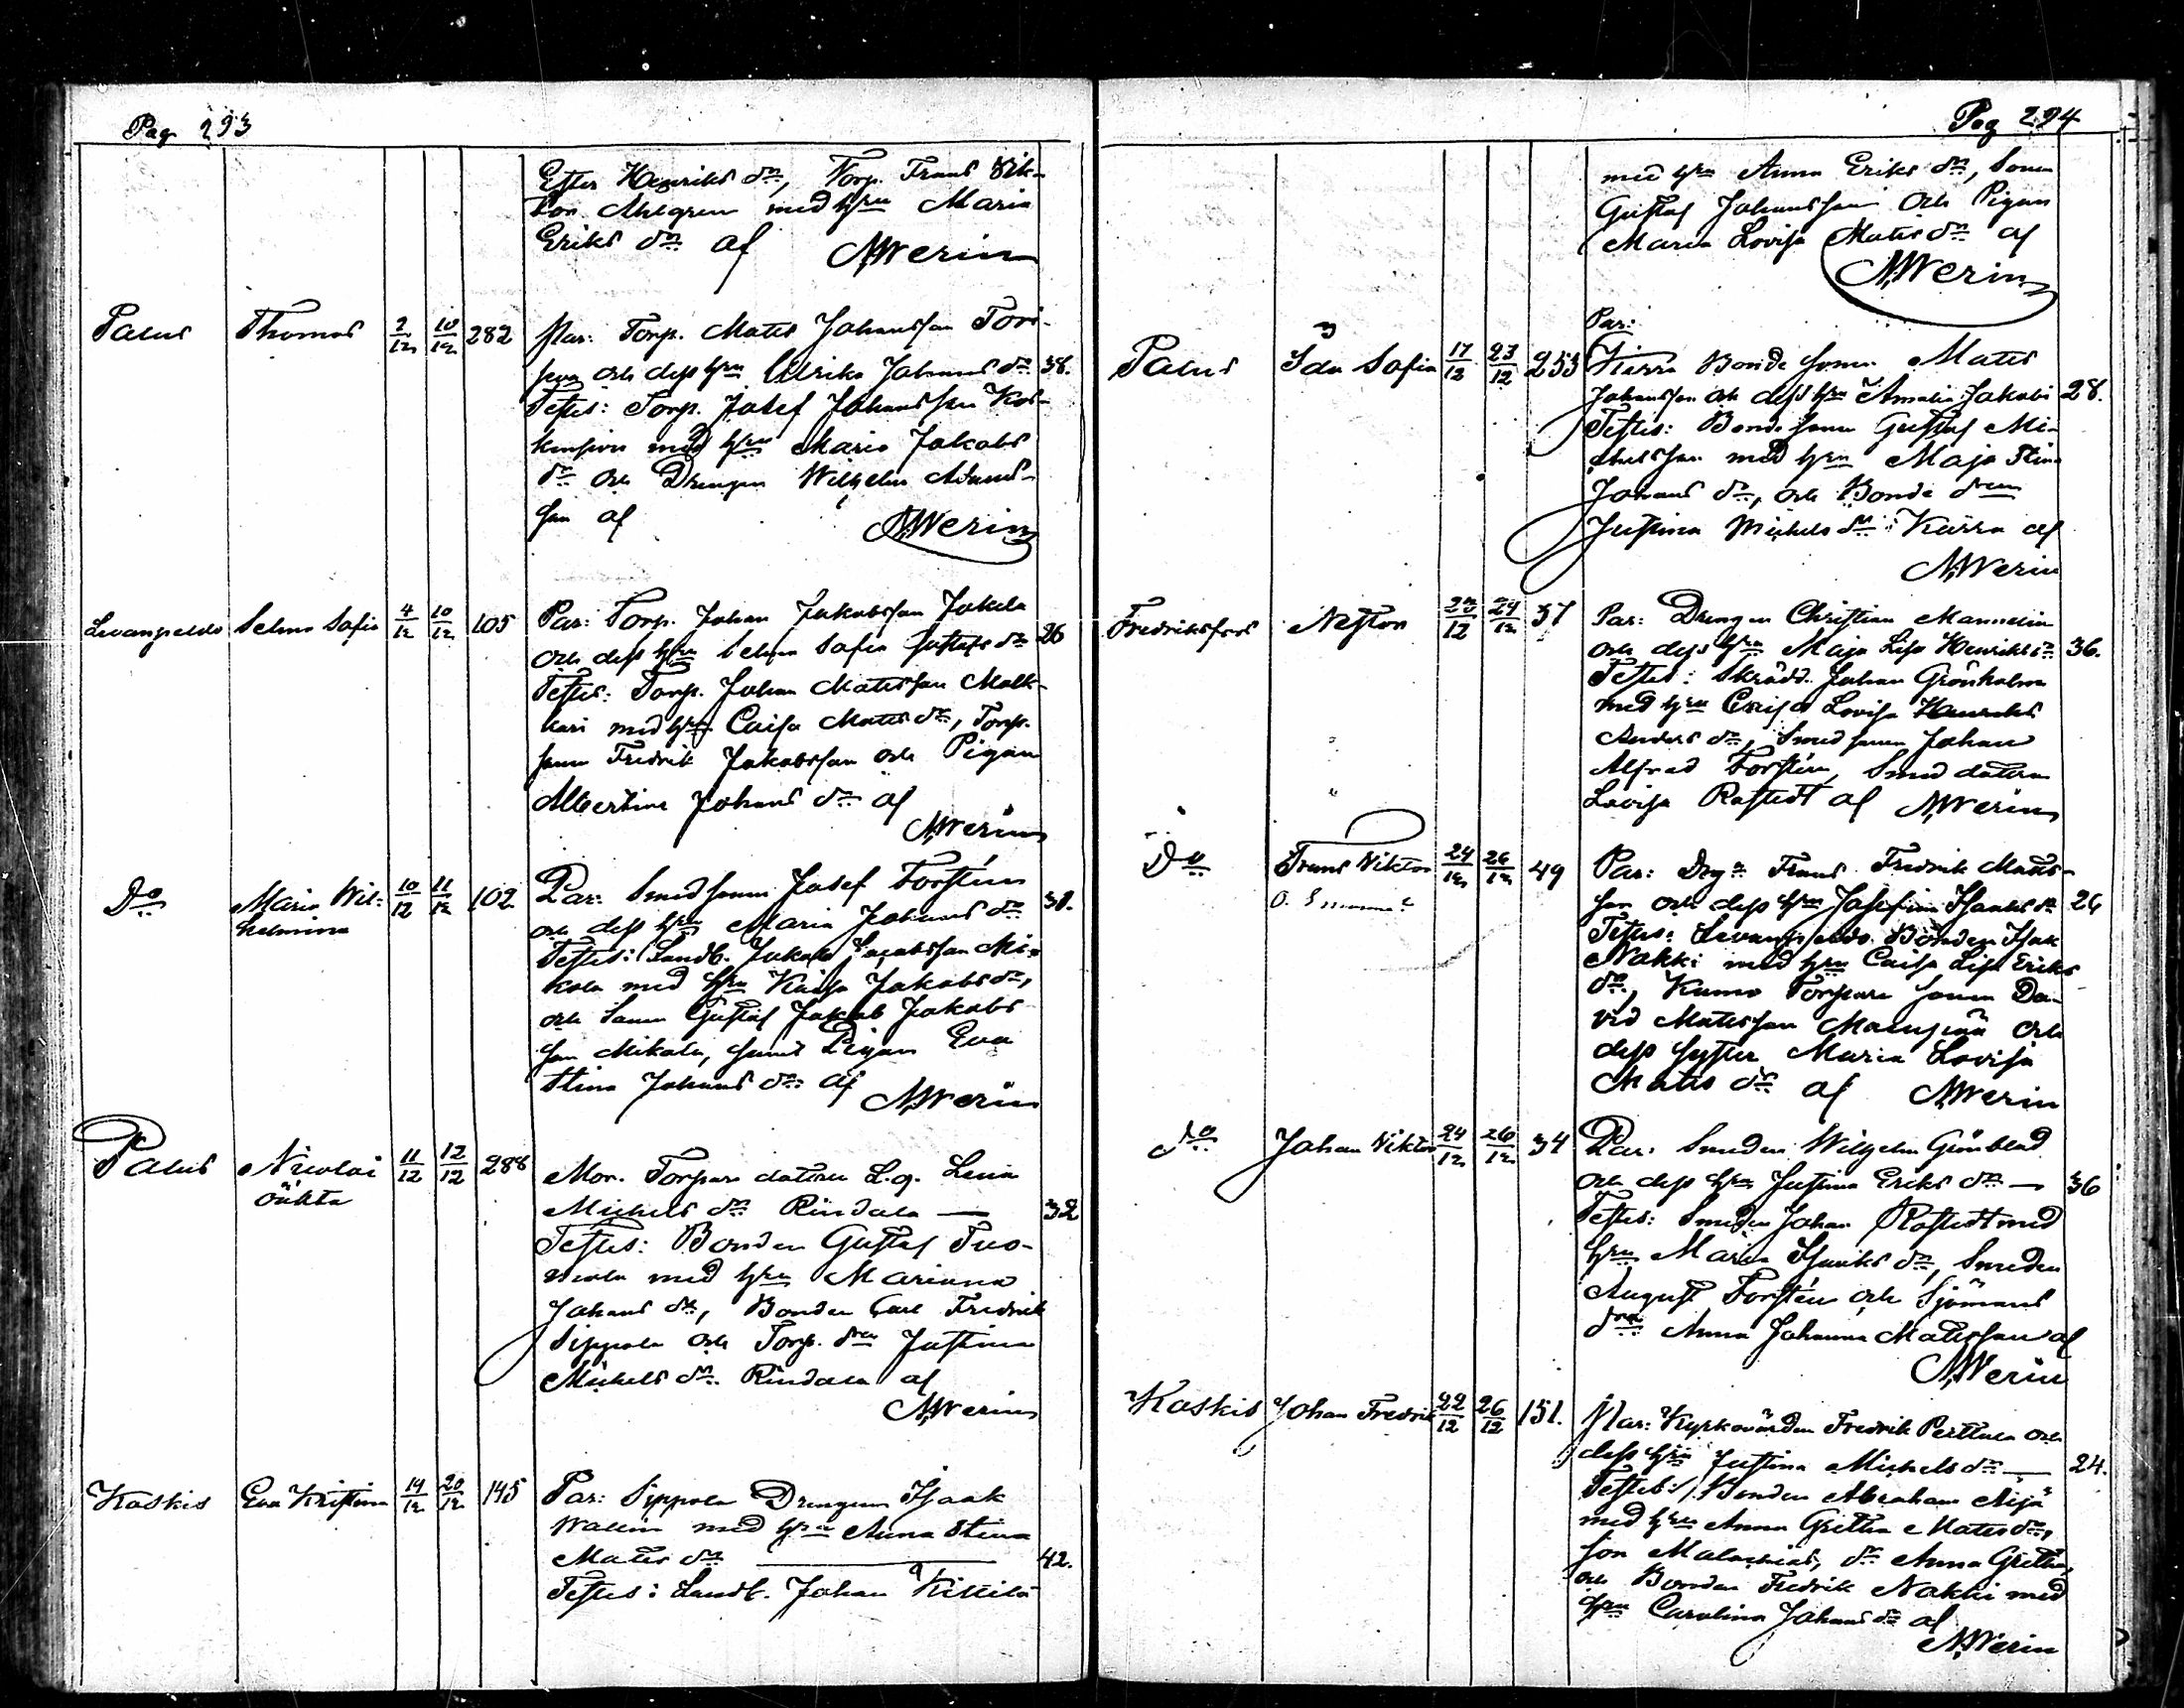 Pag 293
Ester Henriks dr, Torp. Frans Vik-
tor Ahlgren med hru Maria
Eriks dr af AWerin
Palus Thomas 2/12 10/12 282 Par: Torp. Mats Johansson Tori-
seva och dess hru Ulrika Johans dr 38.
Testes: Torp. Josef Johansson Kos-
kensivu med hru Maria Jakobs
dr och Drengen Wilhelm Adams-
son af AWerin
Levanpeldo Selma Sofia 4/12 10/12 105 Par: Torp. Johan Jakobsson Jakela
och dess hru Selma Sofia Gustafs dr 26
Testes: Torp. Johan Matsson Malk-
kari med hru Caisa Mats dr, Torp.
sonen Fredrik Jakobsson och Pigan
Albertina Johans dr af
AWerin
Do Maria Wil- 10/12 11/12 102 Par: Smedsonen Josef Forstén
helmina och dess hru Maria Johans dr 30.
Testes: Landb. Jakob Jacobsson Mi-
kola med hru Kaisa Jakobs dr,
och Sonen Gustaf Jakob Jakobs
son Mikola, samt Pigan Eva
Stina Johans dr af AWerin
Palus Nicolai 11/12 12/12 288 Mor. Torpare dottren L.q. Lena
oäkta Michels dr Rindala — 32
Testes: Bonden Gustaf Tuo-
mola med hru Mariana
Johans dr, Bonden Carl Fredrik
Sippola och Torp. dren Justina
Michels dr. Rindala af
AWerin
Kaskis Eva Kristina 19/12 20/12 145 Par: Sippola Drengen Isaak
Wallin med hru Anna Stina
Mats dr — 42.
Testes: Landb. Johan Kittilä
Pag 294
med hru Anna Eriks dr, Sonen
Gustaf Johansson och Pigan
Maria Lovisa Mats dr af
AWerin
Par:
Palus Ida Sofia 17/12 23/12 253 Kärrä Bonde sonen Mats
Johansson och dess hru Amalia Jakobs 28.
Testes: Bonde sonen Gustaf Mi-
chelsson med hru Maja Stina
Johans dr, och Bonde dren
Justina Michels dr Kärrä af
AWerin
Fredriksfors Nestor 23/12 24/12 37 Par: Drengen Christian Mannelin
och dess hru Maja Lisa Henriks dr 36.
Testes: Skrädd. Johan Grönholm
med hru Caisa Lovisa Henriks
Anders dr, Smed sonen Johan
Alfred Forstén, Smed dottren
Lovisa Rostedt af AWerin
Do Frans Viktor 24/12 26/12 49 Par: Drgn Frans Fredrik Mats-
son och dess hru Josefina Isaks dr 26
Testes: Levanpeldo Bonden Isak
Nakki med hru Caisa Lisa Eriks
dr, Kumo Torpare sonen Da-
vid Matsson och
dess syster Maria Lovisa
Mats dr af AWerin
Do Johan Viktor 24/12 26/12 34 Par: Smeden Wilhelm Grönblad
och dess hru Justina Eriks dr — 36
Testes: Smeden Johan Rostedt med
hru Maria Isaaks dr, Smeden
August Forstén och Sjömans
dren Anna Johanna Matsson af
AWerin
Kaskis Johan Fredrik 22/12 26/12 151. Par: Kyrkovärden Fredrik Perttula och
dess hru Justina Michels dr — 24.
Testes: Bonden Abraham Äijä
med hru Anna Gretha Mats dr,
son Malachias, dr Anna Gretha,
och Bonden Fredrik Nakki med
hru Carolina Johans dr af
AWerin